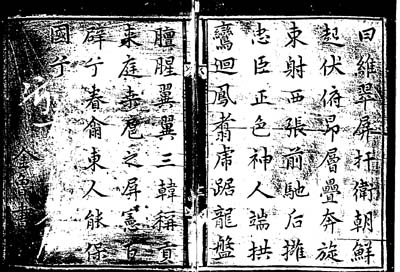 曰維翠屏扞衛朝鮮
起伏俯昻層疊奔旋
東射西張前馳后擁
忠臣正色神人端拱
鸞迴鳳翥虎踞龍盤
膻腥翼翼三韓稱貢
來庭赤
之屏憲百
辟于
東人能保
國于